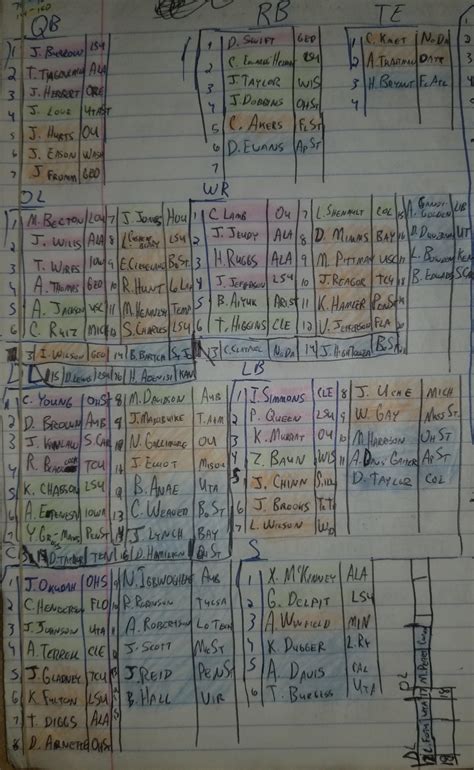 QB
1 J. BURROW LSU
2 T. TAGOVAILOA ALA
3 J. HERBERT ORE
4 J. LOVE UTAST
5 J. HURTS OU
6 J. EASON WASH
7 J. FROMM GEO
RB
1 D. SWIFT GEO
2 LSU
3 J. TAYLOR WIS
4 J. DOBBINS OHST
5 C. AKERS FLST
6 D. EVANS APST
TE
1 C. KMET NODA
2 A. TRAUTMAN DAYT
3 H. BRYANT FLATL
4
OL
1 M. BECTON LOU
2 J. WILLS ALA
3 T. WIRFS IOWA
4 A. THOMAS GEO
5 A. JACKSON USC
6 C. RUIZ MICH
7 J. JONES HOU
8 LSU
E. CLEVELAND BOST
R. HUNT
M. HENNESSY TEMP
S. CHARLES LSU
13 I. WILSON GEO
14 B. BARTCH
15 D. LEWIS LSU
16 H. ADENIJI KAN
WR
1 C. LAMB OU
2 J. JEUDY ALA
3 H. RUGGS ALA
4 J. JEFFERSON LSU
5 B. AIYUK ARIST
6 T. HIGGINS CLE
7 L. SHENAULT COL
8 D. MIMMS BAY
M. PITTMAN USC
J. REAGOR TCU
11 K. HAMLER PENST
V. JEFFERSON FLO
13 C. CLAYPOOL NODA
14 J. HIGHTOWER BST
A. GANDY GOLDEN LIB
UT
B. EDWARDS SCAR
1 C. YOUNG OHST
2 D. BROWN AUB
3 J. KINLAW S.CAR
4 R. TCU
5 K. CHAISSON LSU
6 A. EPENESA IOWA
7 Y. GROSS-MATOS PENST
8 M. DAVIDSON AUB
J. MADUBUIKE T.A+M
N. GALLIMORE OU
J. ELLIOT MISSOU
B. ANAE UTA
C. WEAVER BOST
J. LYNCH BAY
D. TAYLOR TEN
16 D. HAMILTON OHST
LB
1 I. SIMMONS CLE
2 P. QUEEN LSU
3 K. MURRAY OU
4 Z. BAUN WIS
5 J. CHINN S.ILL
6 J. BROOKS T.TU
7 L. WILSON WYO
8 J. UCHE MICH
9 W. GAY MISSST
M. HARRISON OHST
A. DAVIS GAITHER APST
D. TAYLOR COL
C
1 J. OKUDAH OHS
2 C. HENDERSON FLO
3 J. JOHNSON UTA
4 A. TERRELL CLE
5 J. GLADNEY TCU
6 K. FULTON LSU
7 T. DIGGS ALA
8 D. ARNETTE OHST
N. IGBINOGHENE AUB
R. ROBINSON TULSA
A. ROBERTSON LOTECH
J. SCOTT
J. REID PENST
B. HALL VIR
S
1 X. McKINNEY ALA
2 G. DELPIT LSU
3 A. WINFIELD MIN
4 K. DUGGER L.RY
5 A. DAVIS CAL
6 T. BURGESS UTA
DL